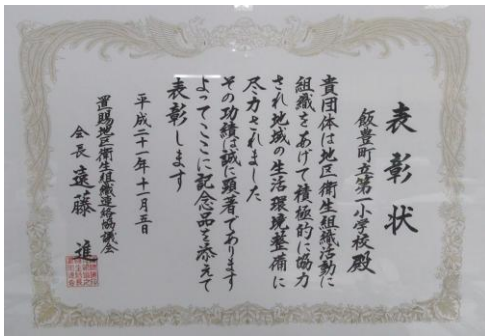 表彰状
飯豊町立第一小学校殿
貴団体は地区衛生組織活動に
組織をあげて積極的に協力
され地域の生活環境整備に
尽力されました
その功績は誠に顕著であります
よってここに記念品を添えて
表彰します
平成二十一年十一月五日
置賜地区衛生組織連絡協議会
会長 遠藤 進